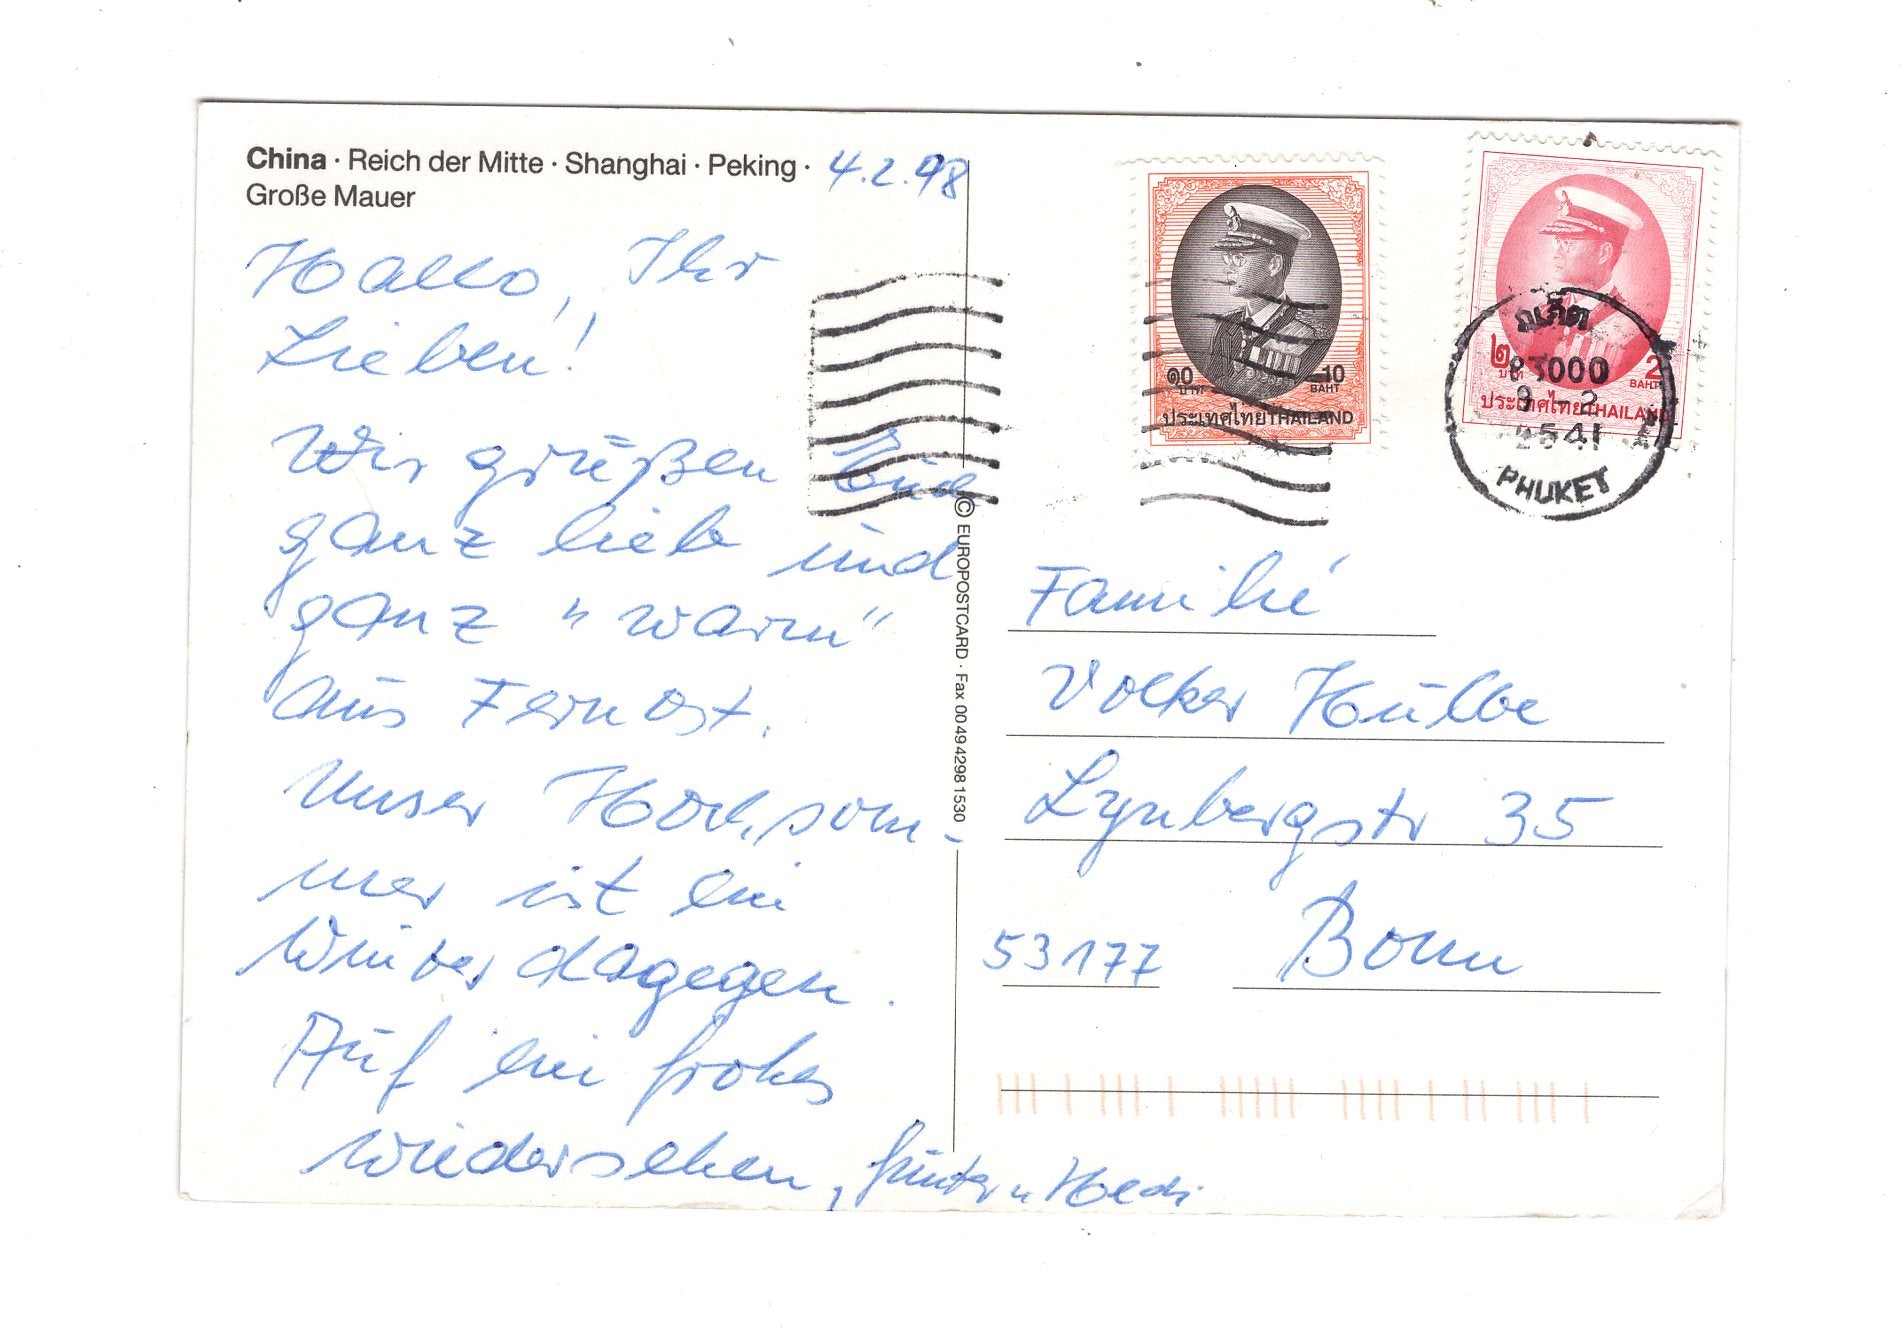 China · Reich der Mitte · Shanghai · Peking ·
Große Mauer
4.2.98
Hallo, Ihr
Lieben!
Wir grüßen Euch
ganz lieb und
ganz "warm"
aus Fernost.
Unser Hochsom-
mer ist ein
Winter dagegen.
Auf ein frohes
Wiedersehen, Günter u Hedi
© EUROPOSTCARD · Fax 00 49 4298 1530
๑๐ บาท
10 BAHT
ประเทศไทย THAILAND
๒ บาท
2 BAHT
ประเทศไทย THAILAND
ภูเก็ต
83000
9 - 2
2541
PHUKET
Familie
Volker Hülbe
Lynbergstr 35
53177 Bonn